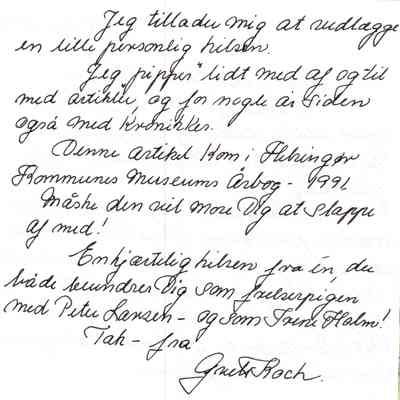 Jeg tillader mig at vedlægge
en lille personlig hilsen.
Jeg "pipper" lidt med af og til
med artikler, og for nogle år siden
også med Kronikker.
Denne artikel kom i Helsingør
Kommunes Museums Årbog - 1991
Måske den vil more Dig at slappe
af med!
En hjærtelig hilsen fra én, der
både beundrer Dig som frelserpigen
med Peter Larsen - og som Irene Holm!
Tak - fra
Grete Koch.